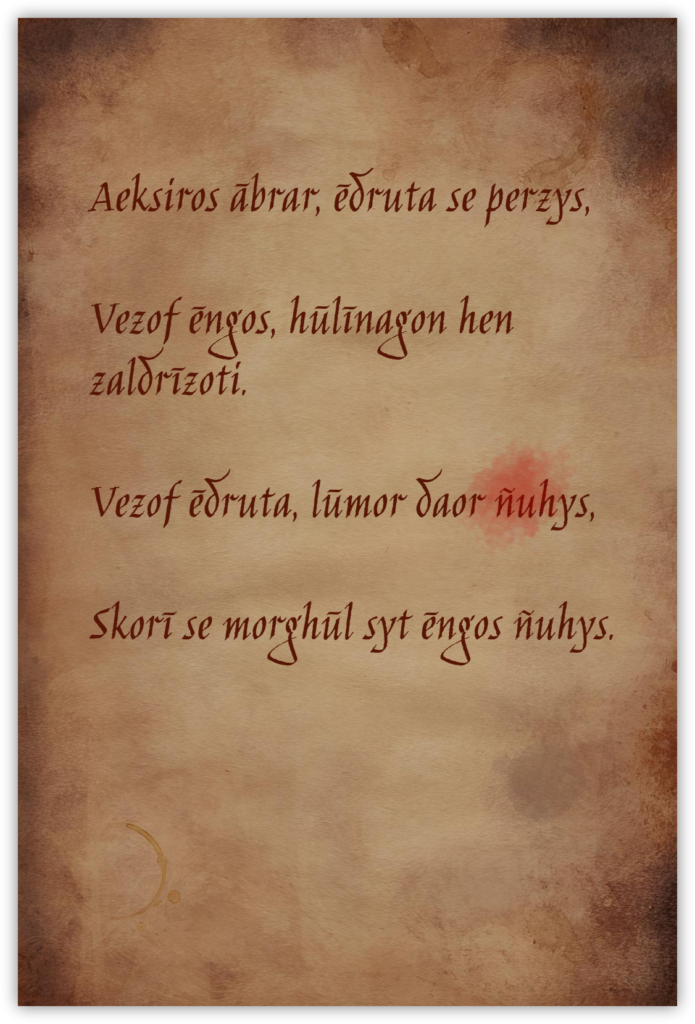 Aeksiros ābrar, ēdruta se perzys,
Vezof ēngos, hūlīnagon hen
zaldrīzoti.
Vezof ēdruta, lūmor daor ñuhys,
Skorī se morghūl syt ēngos ñuhys.